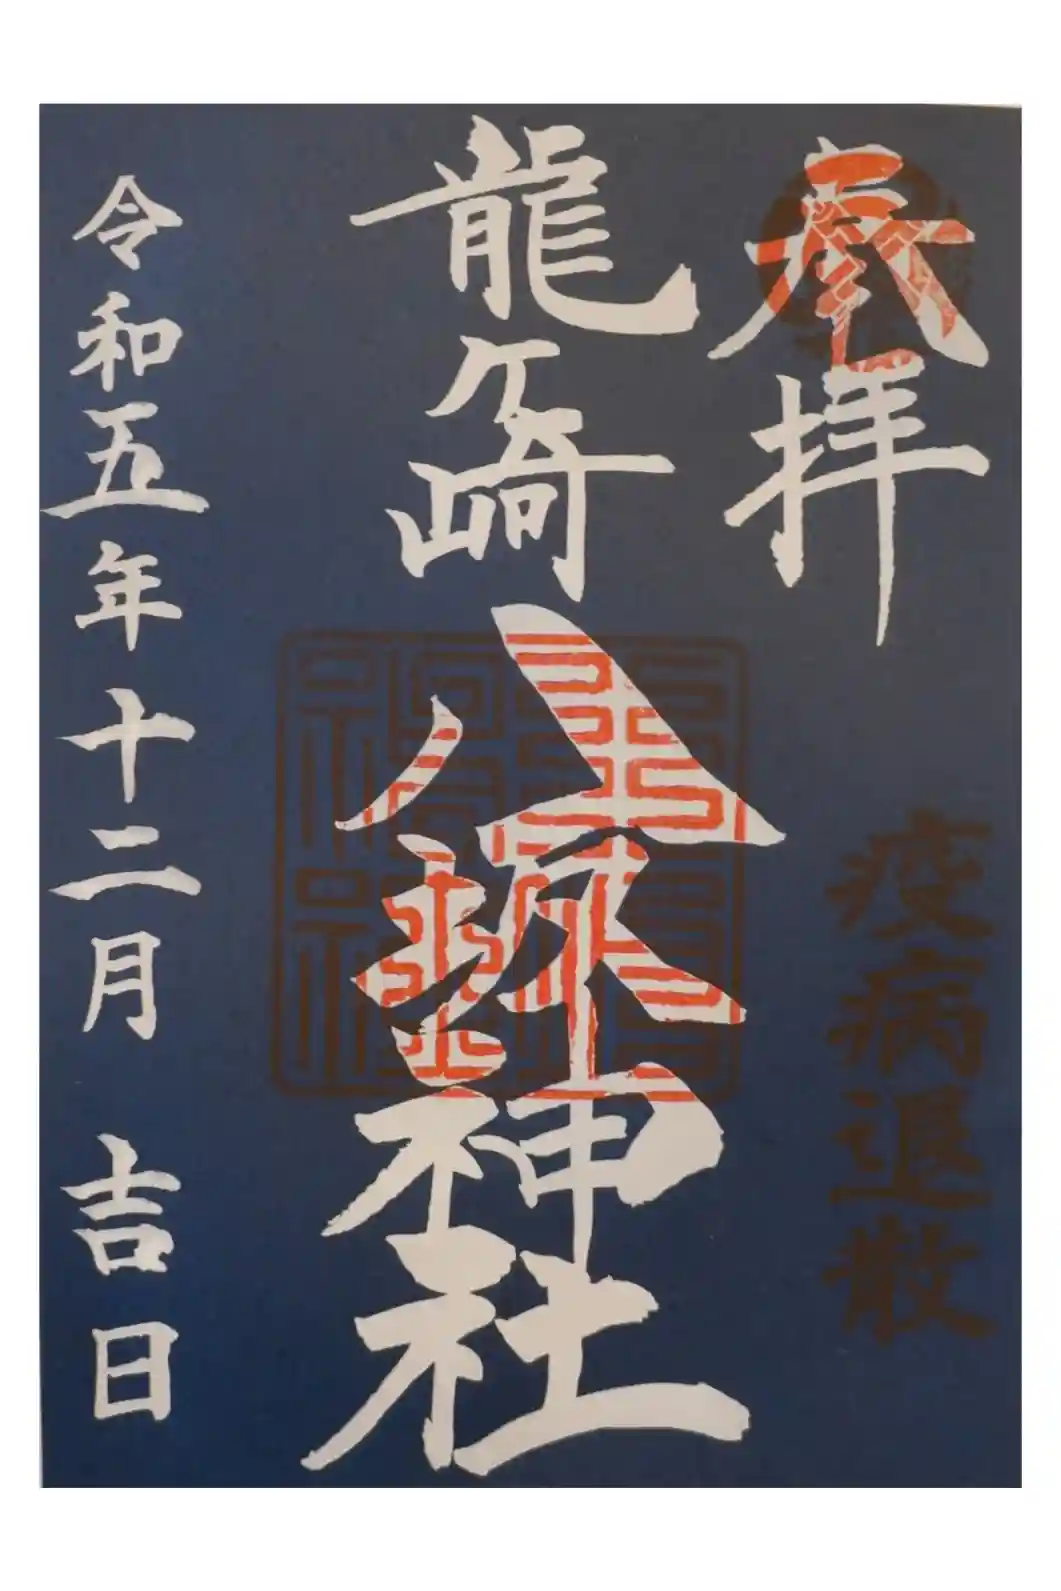 奉拝
疫病退散
龍ケ崎八坂神社
令和五年十二月 吉日